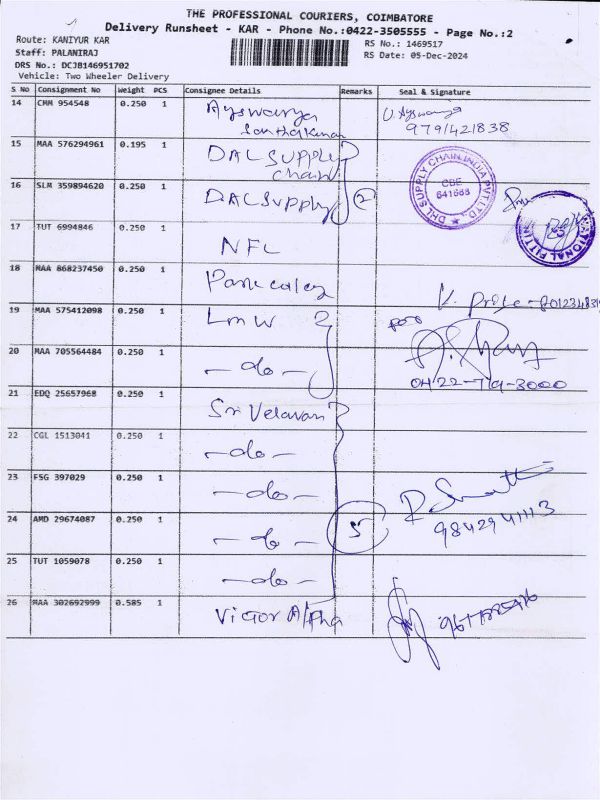 THE PROFESSIONAL COURIERS, COIMBATORE
Delivery Runsheet - KAR - Phone No.:0422-3505555 - Page No.:2
Route: KANIYUR KAR
RS No.: 1469517
Staff: PALANIRAJ
RS Date: 05-Dec-2024
DRS No.: DCJB146951702
Vehicle: Two Wheeler Delivery
S No Consignment No Weight PCS Consignee Details Remarks Seal & Signature
14 CMM 954548 0.250 1 Ayswarya
9791421838
15 MAA 576294961 0.195 1 DAL SUPPLY
chain
DHL SUPPLY CHAIN INDIA PVT.LTD.
CBE
641668
16 SLM 359894620 0.250 1 DAL SUPPLY 2
17 TUT 6994846 0.250 1 NFL
18 MAA 868237450 0.250 1
19 MAA 575412098 0.250 1 LMW 2
for
20 MAA 705564484 0.250 1 -do-
0422-719-3000
21 EDQ 25657968 0.250 1 Sri Velavan
22 CGL 1513041 0.250 1 -do-
23 FSG 397029 0.250 1 -do-
24 AMD 29674087 0.250 1 -do- 5
9842941113
25 TUT 1059078 0.250 1 -do-
26 MAA 302692999 0.585 1 Victor Alpha